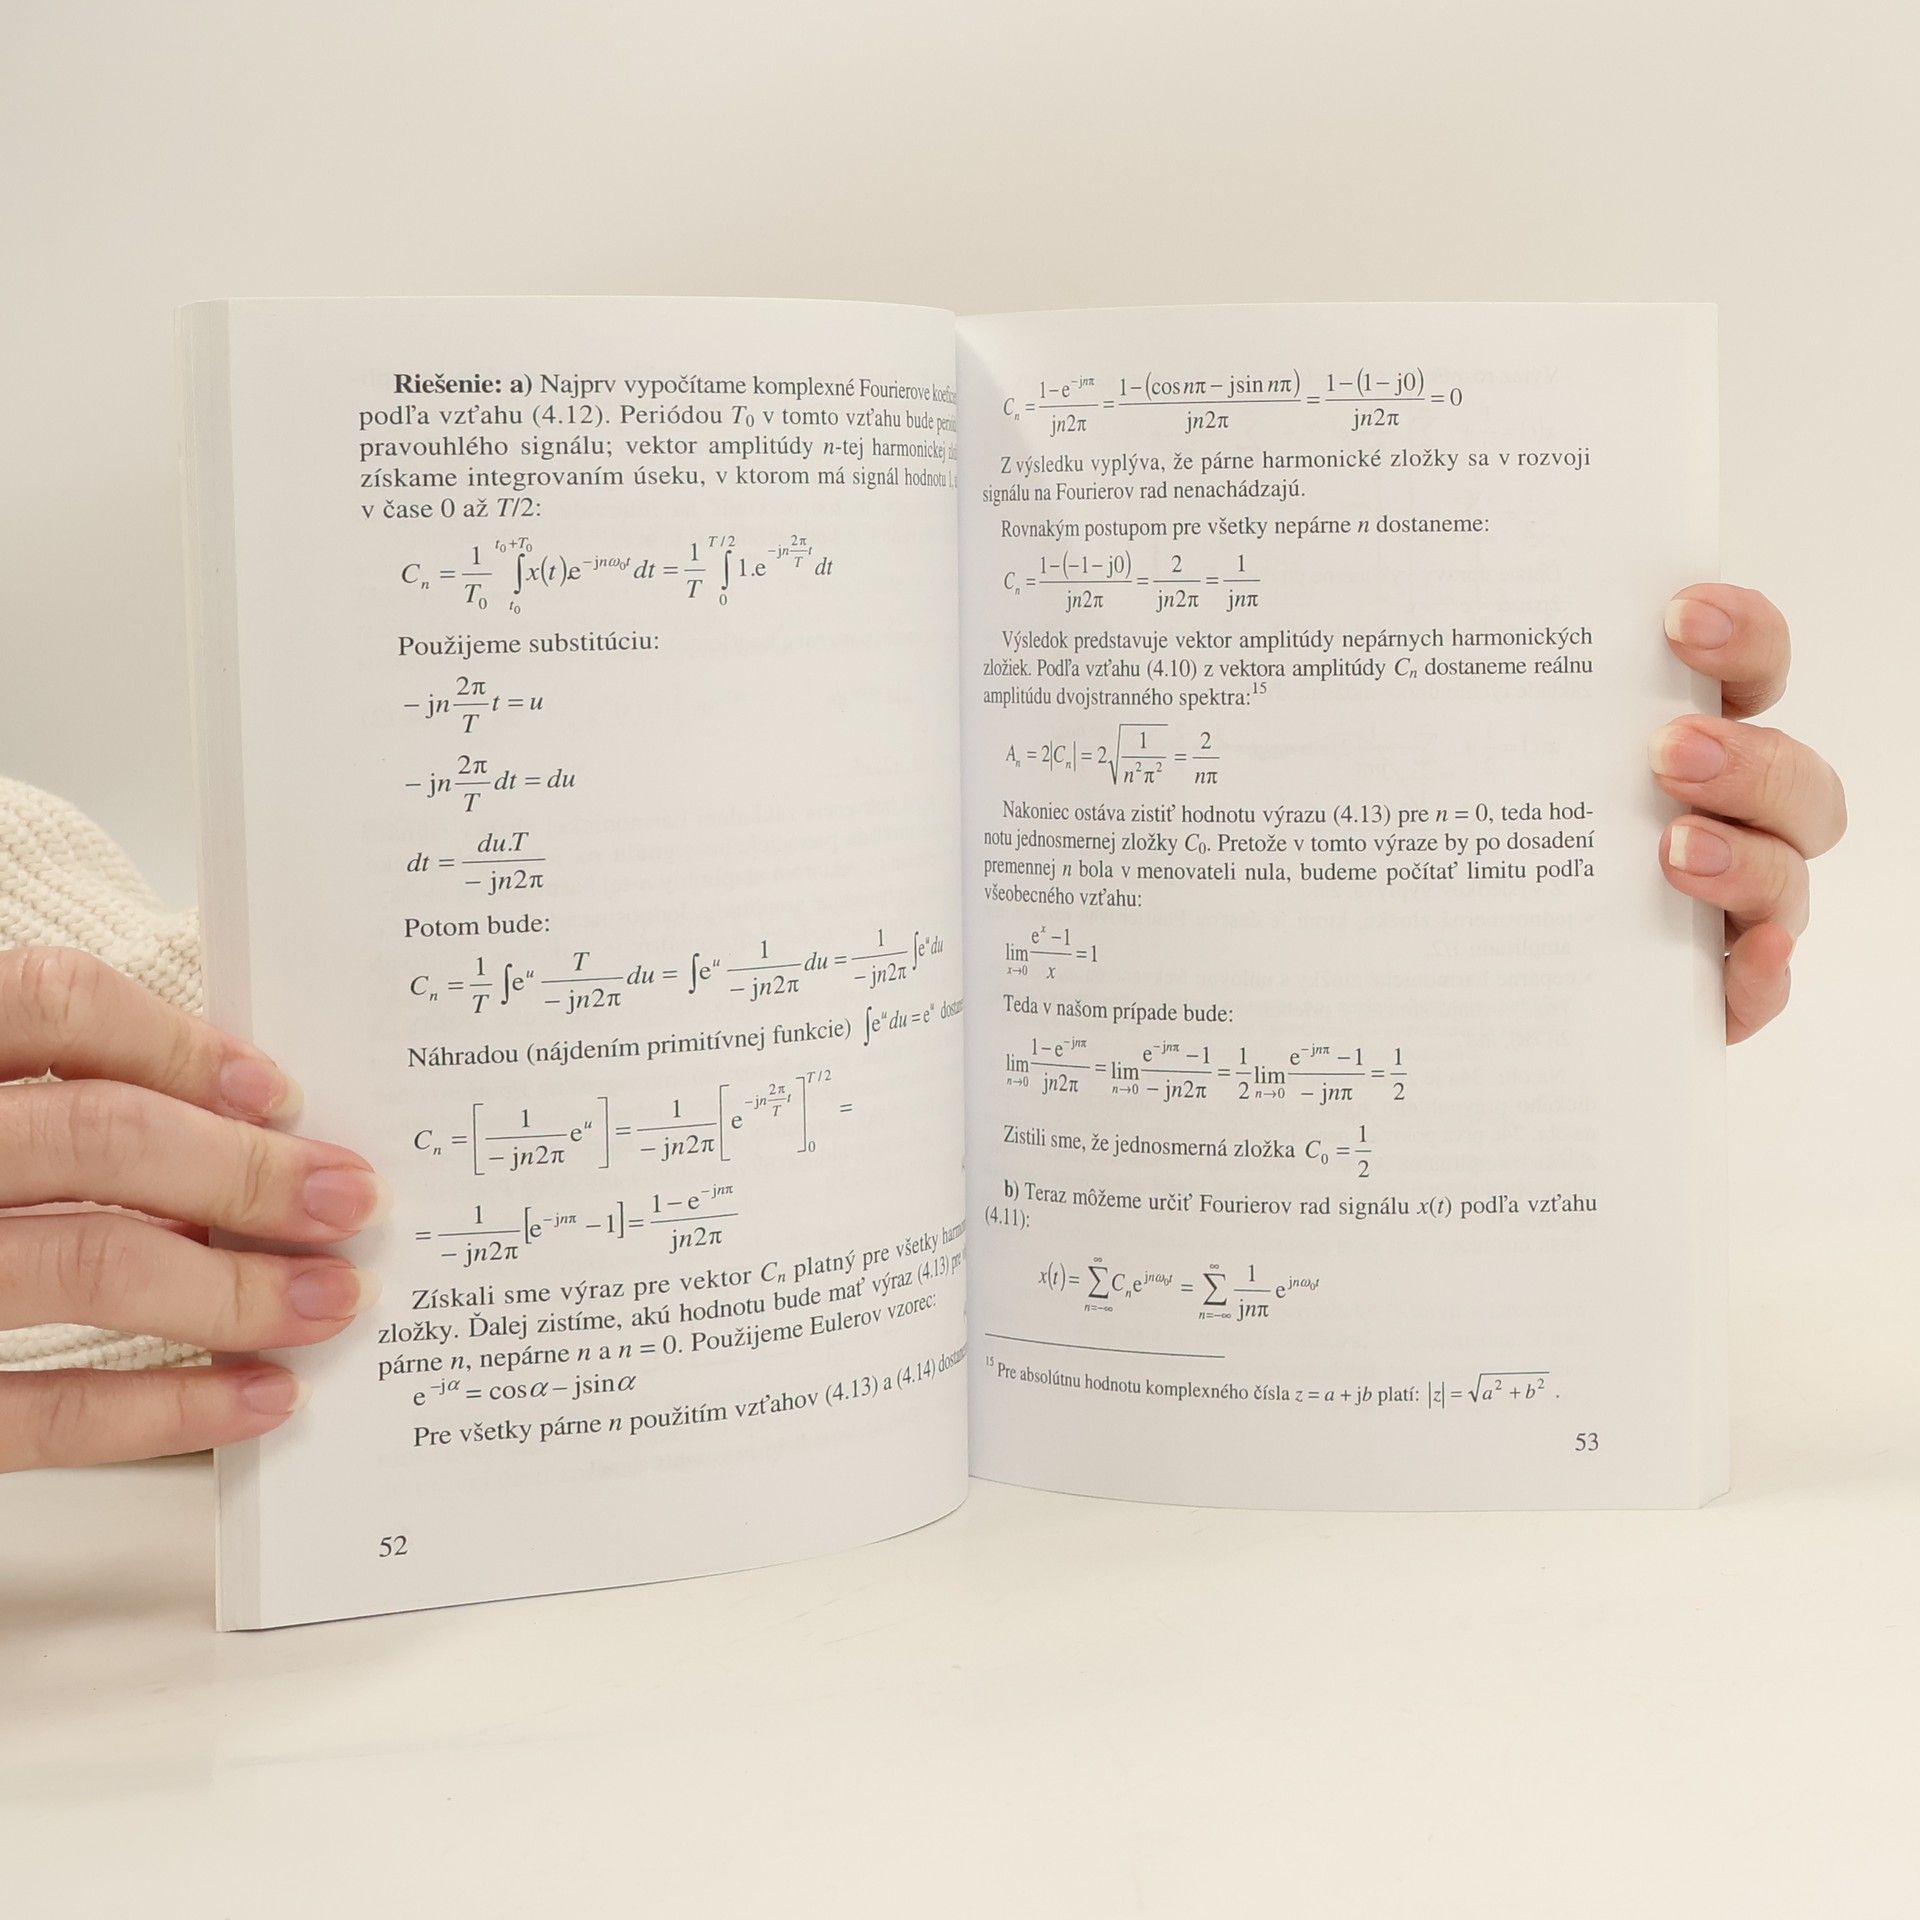 Riešenie: a) Najprv vypočítame komplexné Fourierove
podľa vzťahu (4.12). Periódou T₀ v tomto vzťahu bude
pravouhlého signálu; vektor amplitúdy n-tej harmonickej
získame integrovaním úseku, v ktorom má signál hodnotu 1,
v čase 0 až T/2:
Cₙ = 1/T₀ ∫_{t₀}^{t₀+T₀} x(t)e^{-jnω₀t} dt = 1/T ∫_0^{T/2} 1.e^{-jn(2π/T)t} dt
Použijeme substitúciu:
– jn 2π/T t = u
– jn 2π/T dt = du
dt = du.T / – jn2π
Potom bude:
Cₙ = 1/T ∫eᵘ T/(– jn2π) du = ∫eᵘ 1/(– jn2π) du = 1/(– jn2π) ∫eᵘdu
Náhradou (nájdením primitívnej funkcie) ∫eᵘdu = eᵘ
Cₙ = [1/(– jn2π) eᵘ] = 1/(– jn2π) [e^{-jn(2π/T)t}]_0^{T/2} =
= 1/(– jn2π) [e^{-jnπ} – 1] = (1 – e^{-jnπ})/(jn2π)
Získali sme výraz pre vektor Cₙ platný pre všetky
zložky. Ďalej zistíme, akú hodnotu bude mať výraz (4.13) pre
párne n, nepárne n a n = 0. Použijeme Eulerov vzorec:
e^{-jα} = cosα – jsinα
Pre všetky párne n použitím vzťahov (4.13) a (4.14)
52
Cₙ = (1–e^{-jnπ})/(jn2π) = (1–(cos nπ – jsin nπ))/(jn2π) = (1–(1– j0))/(jn2π) = 0
Z výsledku vyplýva, že párne harmonické zložky sa v rozvoji
signálu na Fourierov rad nenachádzajú.
Rovnakým postupom pre všetky nepárne n dostaneme:
Cₙ = (1–(–1– j0))/(jn2π) = 2/(jn2π) = 1/(jnπ)
Výsledok predstavuje vektor amplitúdy nepárnych harmonických
zložiek. Podľa vzťahu (4.10) z vektora amplitúdy Cₙ dostaneme reálnu
amplitúdu dvojstranného spektra:¹⁵
Aₙ = 2|Cₙ| = 2√(1/(n²π²)) = 2/(nπ)
Nakoniec ostáva zistiť hodnotu výrazu (4.13) pre n = 0, teda hod-
notu jednosmernej zložky C₀. Pretože v tomto výraze by po dosadení
premennej n bola v menovateli nula, budeme počítať limitu podľa
všeobecného vzťahu:
lim_{x→0} (eˣ –1)/x = 1
Teda v našom prípade bude:
lim_{n→0} (1–e^{-jnπ})/(jn2π) = lim_{n→0} (e^{-jnπ} –1)/(– jn2π) = 1/2 lim_{n→0} (e^{-jnπ} –1)/(– jnπ) = 1/2
Zistili sme, že jednosmerná zložka C₀ = 1/2
b) Teraz môžeme určiť Fourierov rad signálu x(t) podľa vzťahu
(4.11):
x(t) = ∑_{n=–∞}^{∞} Cₙe^{jnω₀t} = ∑_{n=–∞}^{∞} 1/(jnπ) e^{jnω₀t}
¹⁵ Pre absolútnu hodnotu komplexného čísla z = a + jb platí: |z| = √(a² + b²) .
53